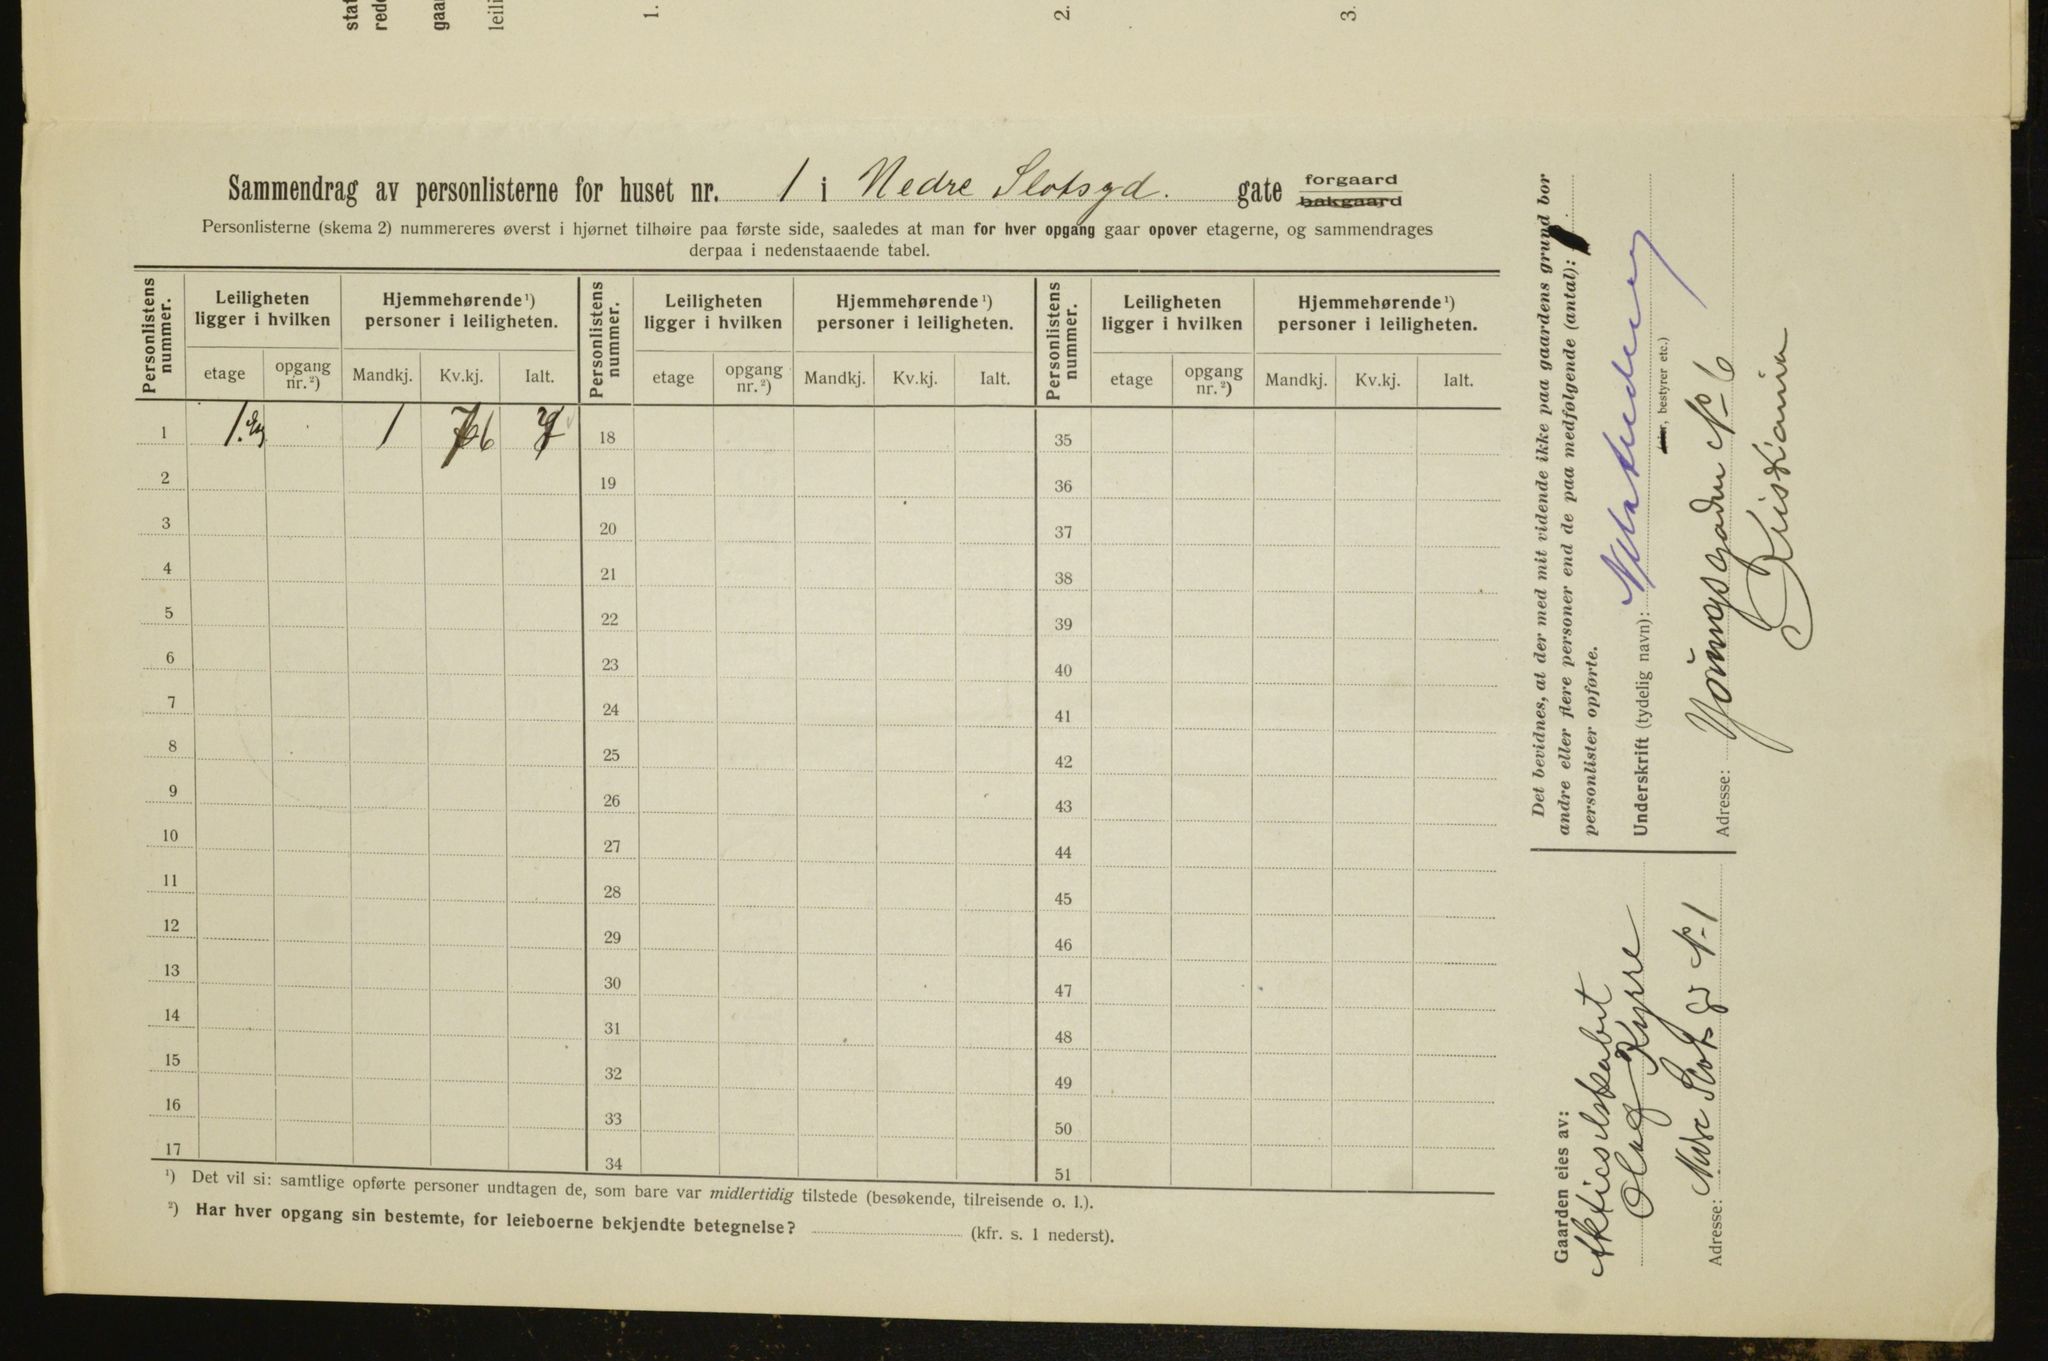 stat
rede
gaa
leili
1.
2.
3.
Sammendrag av personlisterne for huset nr. 1 i Nedre Slotsgd. gate forgaard bakgaard
Personlisterne (skema 2) nummereres øverst i hjørnet tilhøire paa første side, saaledes at man for hver opgang gaar opover etagerne, og sammendrages
derpaa i nedenstaaende tabel.
Personlistens nummer. Leiligheten ligger i hvilken Hjemmehørende ¹) personer i leiligheten. Personlistens nummer. Leiligheten ligger i hvilken Hjemmehørende ¹) personer i leiligheten. Personlistens nummer. Leiligheten ligger i hvilken Hjemmehørende ¹) personer i leiligheten.
etage opgang nr. ²) Mandkj. Kv.kj. Ialt. etage opgang nr. ²) Mandkj. Kv.kj. Ialt. etage opgang nr. ²) Mandkj. Kv.kj. Ialt.
1 1 6 7 18 35
2 19 36
3 20 37
4 21 38
5 22 39
6 23 40
7 24 41
8 25 42
9 26 43
10 27 44
11 28 45
12 29 46
13 30 47
14 31 48
15 32 49
16 33 50
17 34 51
¹) Det vil si: samtlige opførte personer undtagen de, som bare var midlertidig tilstede (besøkende, tilreisende o. l.).
²) Har hver opgang sin bestemte, for leieboerne bekjendte betegnelse? (kfr. s. 1 nederst).
Gaarden eies av:
Aktieselskabet
Olaf Kyrre
Adresse: Nedre Slots gd No 1
Det bevidnes, at der med mit vidende ikke paa gaardens grund bor
andre eller flere personer end de paa medfølgende (antal):
personlister opførte.
Underskrift (tydelig navn):
eier, bestyrer etc.)
Adresse: Youngsgaden No 6
Kristiania